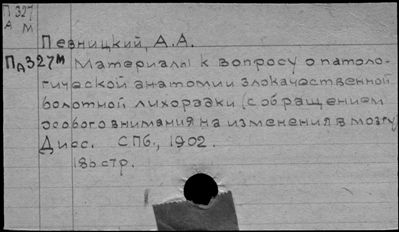 П 327
А М
Певницкий, А.А.
ПА327М Материалы к вопросу о патоло-
гической анатомии злокачественной
болотной лихорадки (с обращением
особого внимания на изменения в мозгу
Дисс. СПб., 1902.
186 стр.